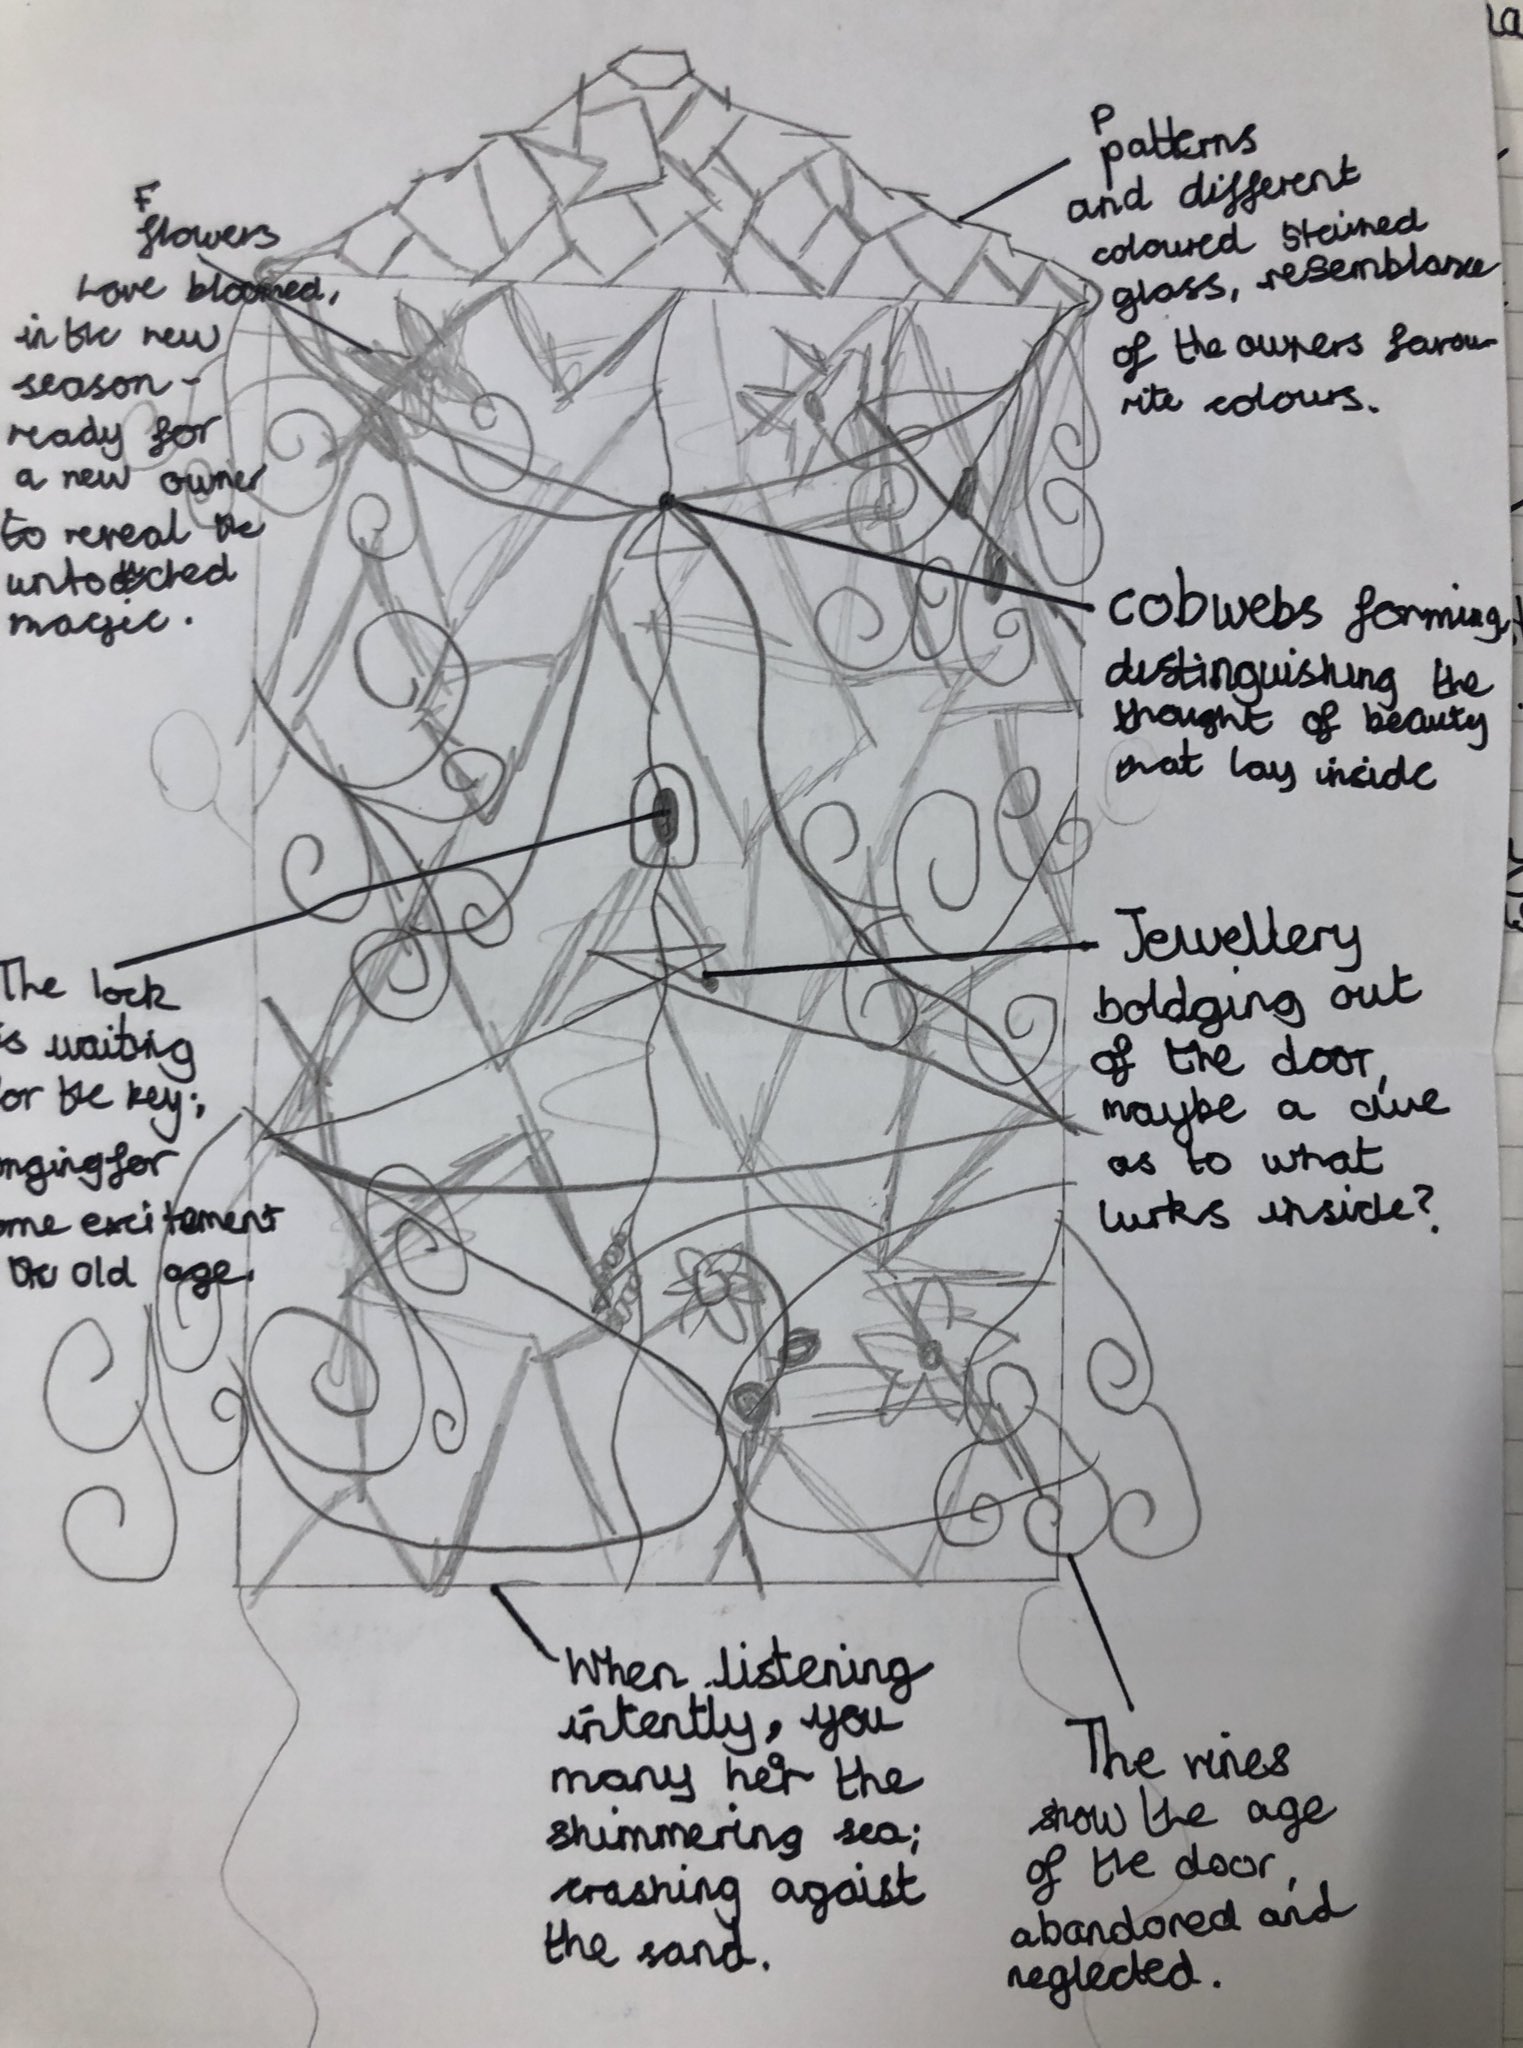 la
P
patterns
and different
coloured stained
glass, resemblance
of the owners favou-
rite colours.
F
flowers
have bloomed,
in the new
season -
ready for
a new owner
to reveal the
untouched
magic.
cobwebs forming,
distinguishing the
thought of beauty
that lay inside
The lock
is waiting
for the key;
onging for
ome excitement
the old age.
Jewellery
boldging out
of the door,
maybe a clue
as to what
lurks inside?
When listening
intently, you
many her the
shimmering sea;
crashing agaist
the sand.
The vines
show the age
of the door,
abandoned and
neglected.